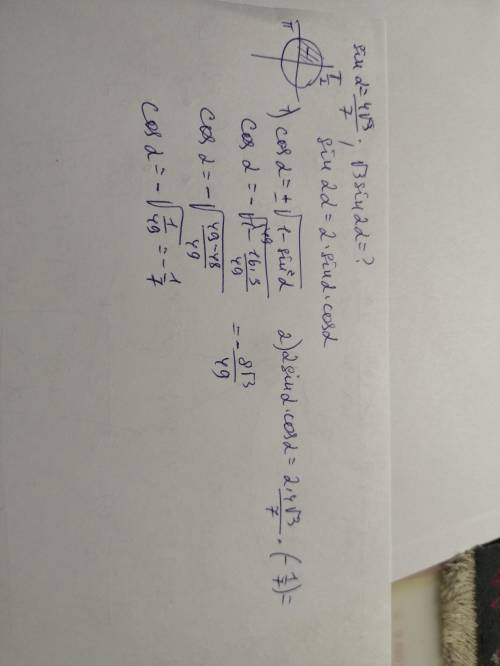 sin α = 4√3/7 ; √3 sin 2α = ?
sin 2α = 2 · sin α · cos α
π/2
π
1) cos α = ± √(1 - sin² α)
cos α = - √(1 - 16·3/49)
cos α = - √((49-48)/49)
cos α = - √(1/49) = - 1/7
2) 2 sin α · cos α = 2·4√3/7 · (- 1/7) =
= - 8√3/49